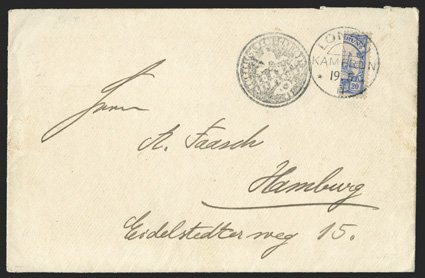 LON
KAMERUN
20
Herrn
A. Faasch
Hamburg
Eidelstedter weg 15.